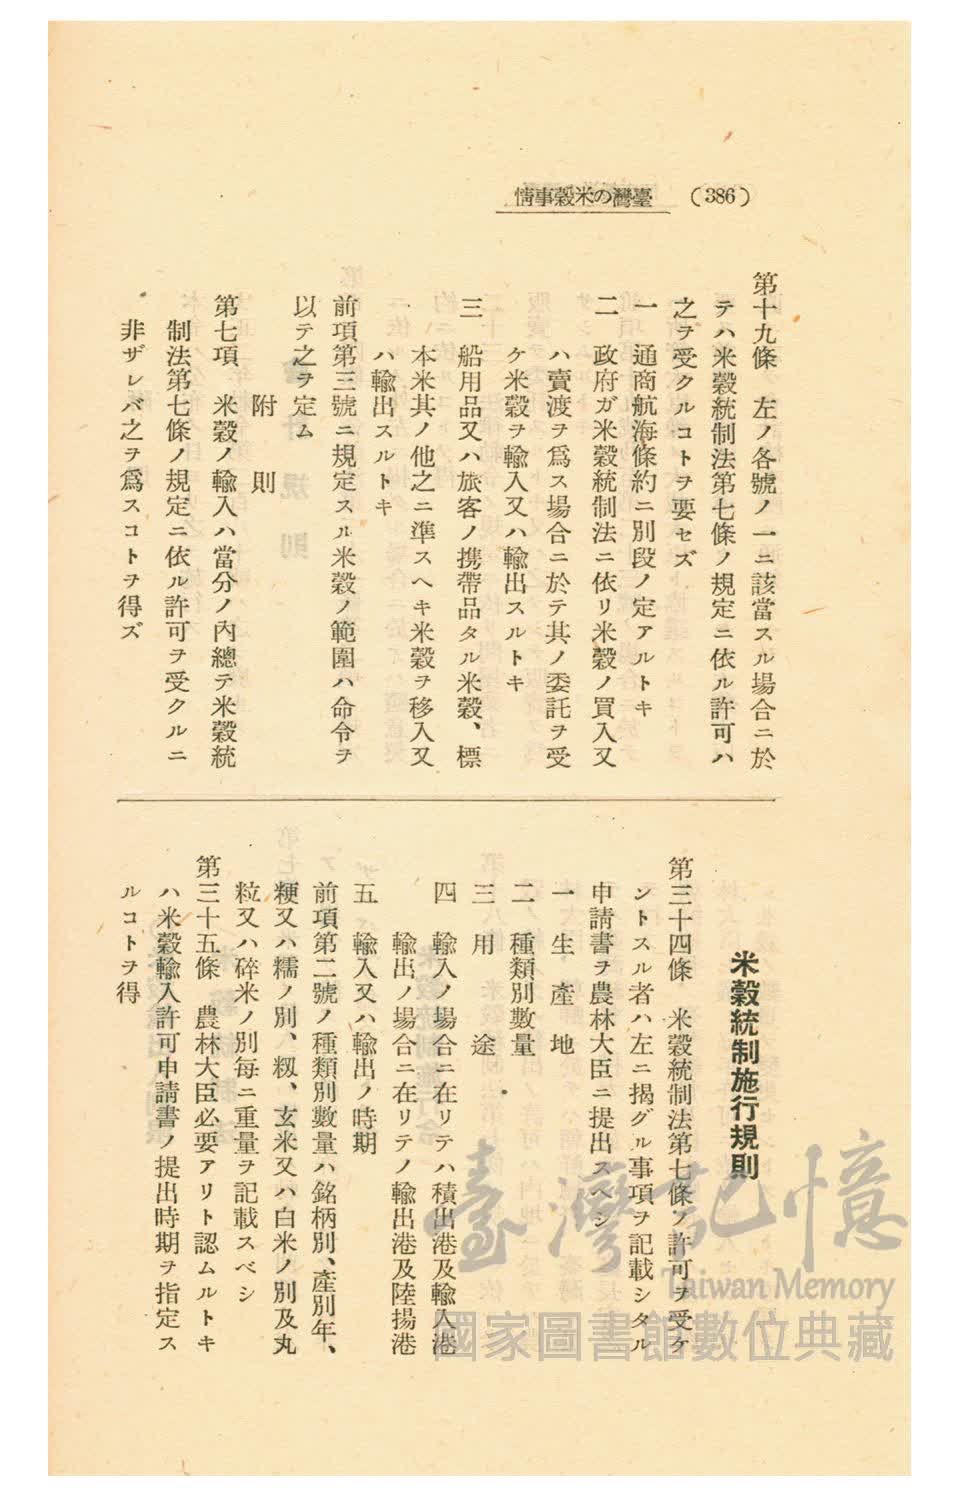 (386) 臺灣の米穀事情
第十九條　左ノ各號ノ一ニ該當スル場合ニ於
テハ米穀統制法第七條ノ規定ニ依ル許可ハ
之ヲ受クルコトヲ要セズ
一　通商航海條約ニ別段ノ定アルトキ
二　政府ガ米穀統制法ニ依リ米穀ノ買入又
ハ賣渡ヲ爲ス場合ニ於テ其ノ委託ヲ受
ケ米穀ヲ輸入又ハ輸出スルトキ
三　船用品又ハ旅客ノ携帶品タル米穀、標
本米其ノ他之ニ準スヘキ米穀ヲ移入又
ハ輸出スルトキ
前項第三號ニ規定スル米穀ノ範圍ハ命令ヲ
以テ之ヲ定ム
附　則
第七項　米穀ノ輸入ハ當分ノ內總テ米穀統
制法第七條ノ規定ニ依ル許可ヲ受クルニ
非ザレバ之ヲ爲スコトヲ得ズ
米穀統制施行規則
第三十四條　米穀統制法第七條ノ許可ヲ受ケ
ントスル者ハ左ニ揭グル事項ヲ記載シタル
申請書ヲ農林大臣ニ提出スヘシ
一　生產地
二　種類別數量
三　用途
四　輸入ノ場合ニ在リテハ積出港及輸入港
輸出ノ場合ニ在リテノ輸出港及陸揚港
五　輸入又ハ輸出ノ時期
前項第二號ノ種類別數量ハ銘柄別、產別年、
粳又ハ糯ノ別、籾、玄米又ハ白米ノ別及丸
粒又ハ碎米ノ別每ニ重量ヲ記載スベシ
第三十五條　農林大臣必要アリト認ムルトキ
ハ米穀輸入許可申請書ノ提出時期ヲ指定ス
ルコトヲ得
臺灣記憶
Taiwan Memory
國家圖書館數位典藏